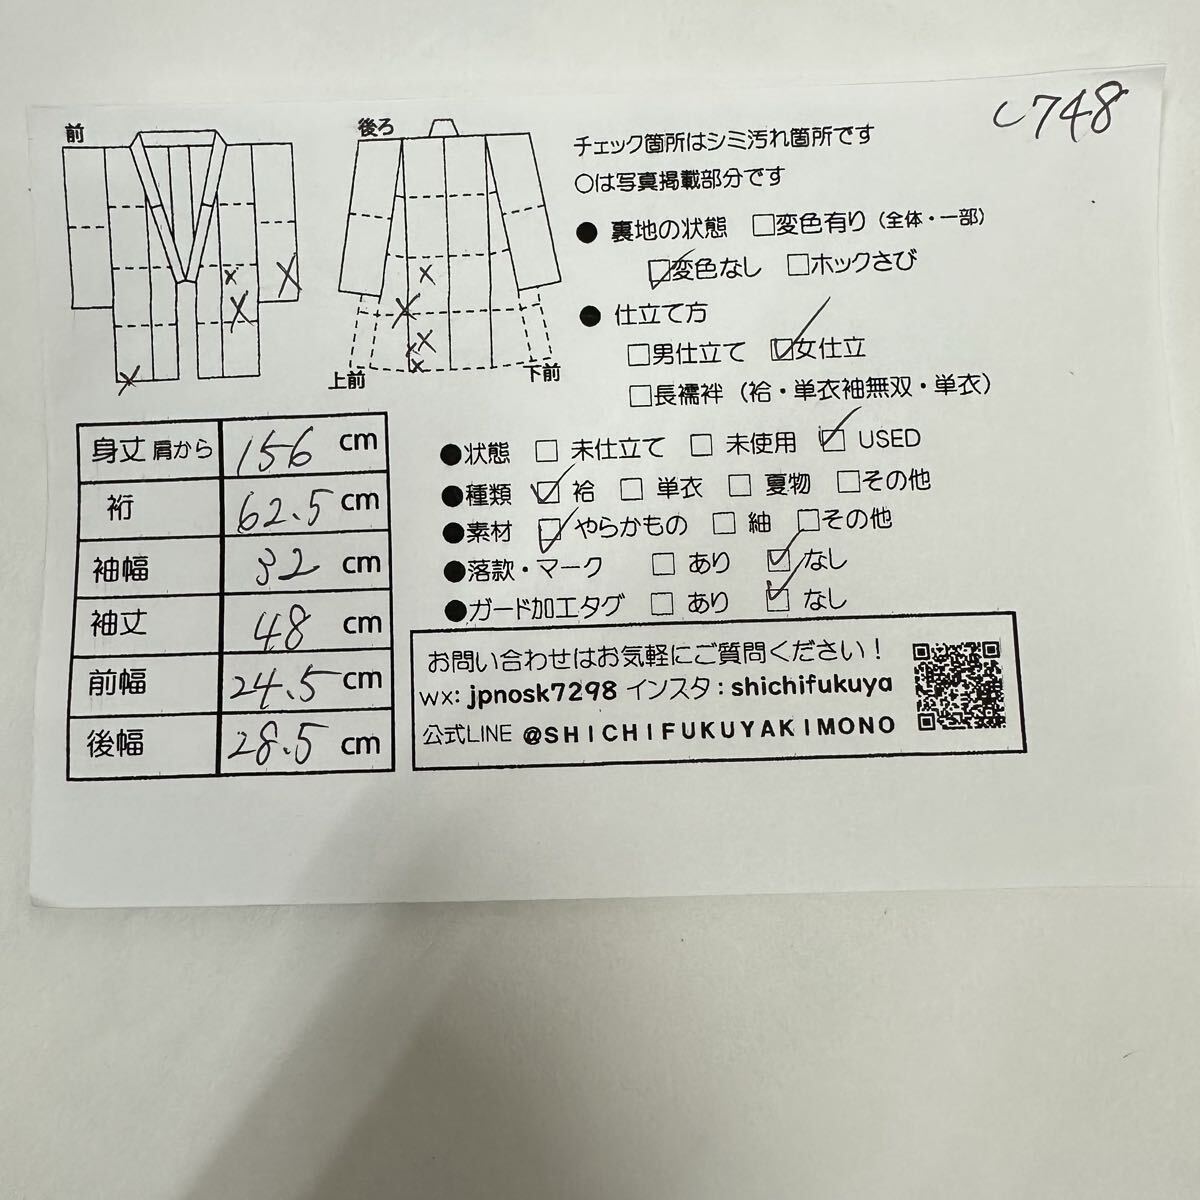 し748
前
後ろ
上前
下前
チェック箇所はシミ汚れ箇所です
○は写真掲載部分です
● 裏地の状態 □変色有り（全体・一部）
☑変色なし □ホックさび
● 仕立て方
□男仕立て ☑女仕立
□長襦袢（袷・単衣袖無双・単衣）
●状態 □ 未仕立て □ 未使用 ☑ USED
●種類 ☑ 袷 □ 単衣 □ 夏物 □その他
●素材 ☑ やらかもの □ 紬 □その他
●落款・マーク □ あり ☑ なし
●ガード加工タグ □ あり ☑ なし
身丈 肩から 156 cm
裄 62.5 cm
袖幅 32 cm
袖丈 48 cm
前幅 24.5 cm
後幅 28.5 cm
お問い合わせはお気軽にご質問ください！
wx: jpnosk7298 インスタ : shichifukuya
公式LINE @SHICHIFUKUYAKIMONO